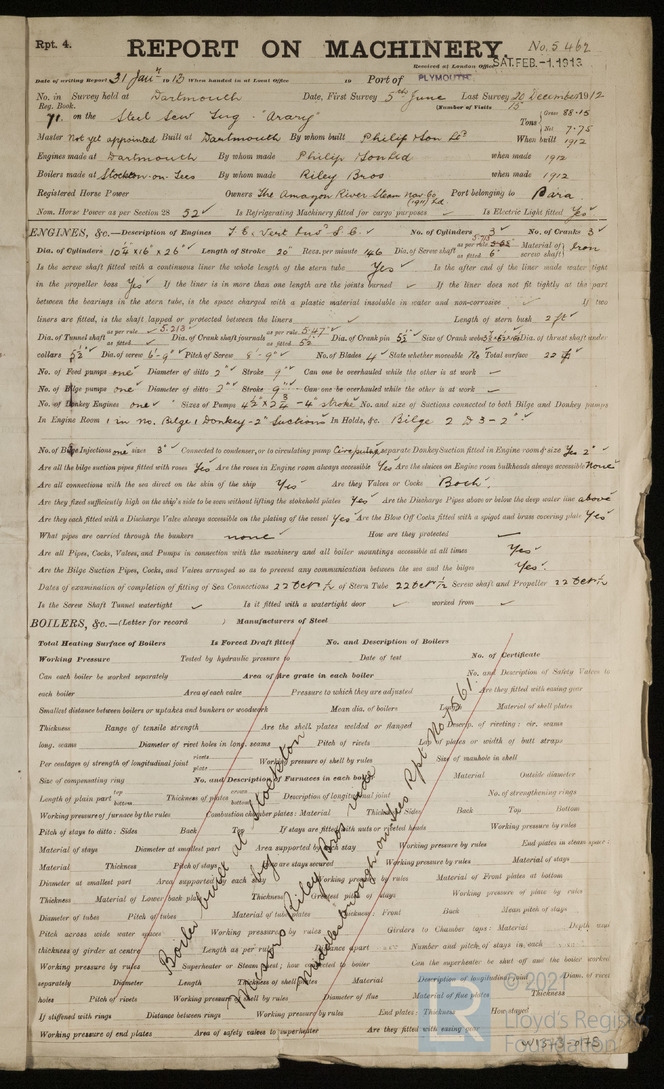 Rpt. 4. REPORT ON MACHINERY. No. 5462
Received at London Office SAT. FEB.-1.1913
Date of writing Report 31 Jany 1913 When handed in at Local Office 19 Port of PLYMOUTH
No. in Survey held at Dartmouth Date, First Survey 5th June Last Survey 20 December 1912
Reg. Book. (Number of Visits 15
71 on the Steel Scw Tug "Arary" Tons Gross 88.15 Net 7.75
Master Not yet appointed Built at Dartmouth By whom built Philip & Son Ld When built 1912
Engines made at Dartmouth By whom made Philip & Son Ltd when made 1912
Boilers made at Stockton-on-Tees By whom made Riley Bros when made 1912
Registered Horse Power Owners The Amazon River Steam Nav. Co (1911) Ld. Port belonging to Para
Nom. Horse Power as per Section 28 52 Is Refrigerating Machinery fitted for cargo purposes Is Electric Light fitted Yes
ENGINES, &c.—Description of Engines No. of Cylinders 3 No. of Cranks 3
Dia. of Cylinders 10¼" x 16" x 26" Length of Stroke 20" Revs. per minute 146 Dia. of Screw shaft as per rule as fitted 6" Material of screw shaft Iron
Is the screw shaft fitted with a continuous liner the whole length of the stern tube Yes Is the after end of the liner made water tight
in the propeller boss Yes If the liner is in more than one length are the joints burned If the liner does not fit tightly at the part
between the bearings in the stern tube, is the space charged with a plastic material insoluble in water and non-corrosive If two
liners are fitted, is the shaft lapped or protected between the liners Length of stern bush 2 ft
Dia. of Tunnel shaft as per rule 5.213 as fitted Dia. of Crank shaft journals as per rule 5.47 as fitted 5½ Dia. of Crank pin 5½ Size of Crank webs Dia. of thrust shaft under
collars 5½ Dia. of screw 6'-9" Pitch of Screw 8'-9" No. of Blades 4 State whether moveable No Total surface 22
No. of Feed pumps one Diameter of ditto 2" Stroke 9" Can one be overhauled while the other is at work
No. of Bilge pumps one Diameter of ditto 2" Stroke 9" Can one be overhauled while the other is at work
No. of Donkey Engines one Sizes of Pumps 4½ x 2¾ - 4" stroke No. and size of Suctions connected to both Bilge and Donkey pumps
In Engine Room 1 in no. Bilge 1 Donkey - 2" Suctions In Holds, &c. Bilge 2 D 3 - 2"
No. of Bilge Injections one sizes 3" Connected to condenser, or to circulating pump Circ pump Is a separate Donkey Suction fitted in Engine room & size Yes 2"
Are all the bilge suction pipes fitted with roses Yes Are the roses in Engine room always accessible Yes Are the sluices on Engine room bulkheads always accessible None
Are all connections with the sea direct on the skin of the ship Yes Are they Valves or Cocks Both
Are they fixed sufficiently high on the ship's side to be seen without lifting the stokehold plates Yes Are the Discharge Pipes above or below the deep water line above
Are they each fitted with a Discharge Valve always accessible on the plating of the vessel Yes Are the Blow Off Cocks fitted with a spigot and brass covering plate Yes
What pipes are carried through the bunkers none How are they protected
Are all Pipes, Cocks, Valves, and Pumps in connection with the machinery and all boiler mountings accessible at all times Yes
Are the Bilge Suction Pipes, Cocks, and Valves arranged so as to prevent any communication between the sea and the bilges Yes
Dates of examination of completion of fitting of Sea Connections 22 Octr 12 of Stern Tube 22 Octr 12 Screw shaft and Propeller 22 Octr 12
Is the Screw Shaft Tunnel watertight Is it fitted with a watertight door worked from
BOILERS, &c.—(Letter for record ) Manufacturers of Steel
Total Heating Surface of Boilers Is Forced Draft fitted No. and Description of Boilers
Working Pressure Tested by hydraulic pressure to Date of test No. of Certificate
Can each boiler be worked separately Area of fire grate in each boiler No. and Description of Safety Valves to
each boiler Area of each valve Pressure to which they are adjusted Are they fitted with easing gear
Smallest distance between boilers or uptakes and bunkers or woodwork Mean dia. of boilers Length Material of shell plates
Thickness Range of tensile strength Are the shell plates welded or flanged Descrip. of riveting: cir. seams
long. seams Diameter of rivet holes in long. seams Pitch of rivets Lap of plates or width of butt straps
Per centages of strength of longitudinal joint rivets plate Working pressure of shell by rules Size of manhole in shell
Size of compensating ring No. and Description of Furnaces in each boiler Material Outside diameter
Length of plain part top bottom Thickness of plates crown bottom Description of longitudinal joint No. of strengthening rings
Working pressure of furnace by the rules Combustion chamber plates: Material Thickness: Sides Back Top Bottom
Pitch of stays to ditto: Sides Back Top If stays are fitted with nuts or riveted heads Working pressure by rules
Material of stays Diameter at smallest part Area supported by each stay Working pressure by rules End plates in steam space:
Material Thickness Pitch of stays How are stays secured Working pressure by rules Material of stays
Diameter at smallest part Area supported by each stay Working pressure by rules Material of Front plates at bottom
Thickness Material of Lower back plate Thickness Greatest pitch of stays Working pressure of plate by rules
Diameter of tubes Pitch of tubes Material of tube plates Thickness: Front Back Mean pitch of stays
Pitch across wide water spaces Working pressures by rules Girders to Chamber tops: Material Depth and
thickness of girder at centre Length as per rule Distance apart Number and pitch of stays in each
Working pressure by rules Superheater or Steam chest; how connected to boiler Can the superheater be shut off and the boiler worked
separately Diameter Length Thickness of shell plates Material Description of longitudinal joint Diam. of rivet
holes Pitch of rivets Working pressure of shell by rules Diameter of flue Material of flue plates Thickness
If stiffened with rings Distance between rings Working pressure by rules End plates: Thickness How stayed
Working pressure of end plates Area of safety valves to superheater Are they fitted with easing gear
Boiler built at Stockton
by
Messrs Riley Bros vide
Middlesborough-on-Tees Rpt No 5661.
LR
© 2021
Lloyd's Register
Foundation
W1573-0175